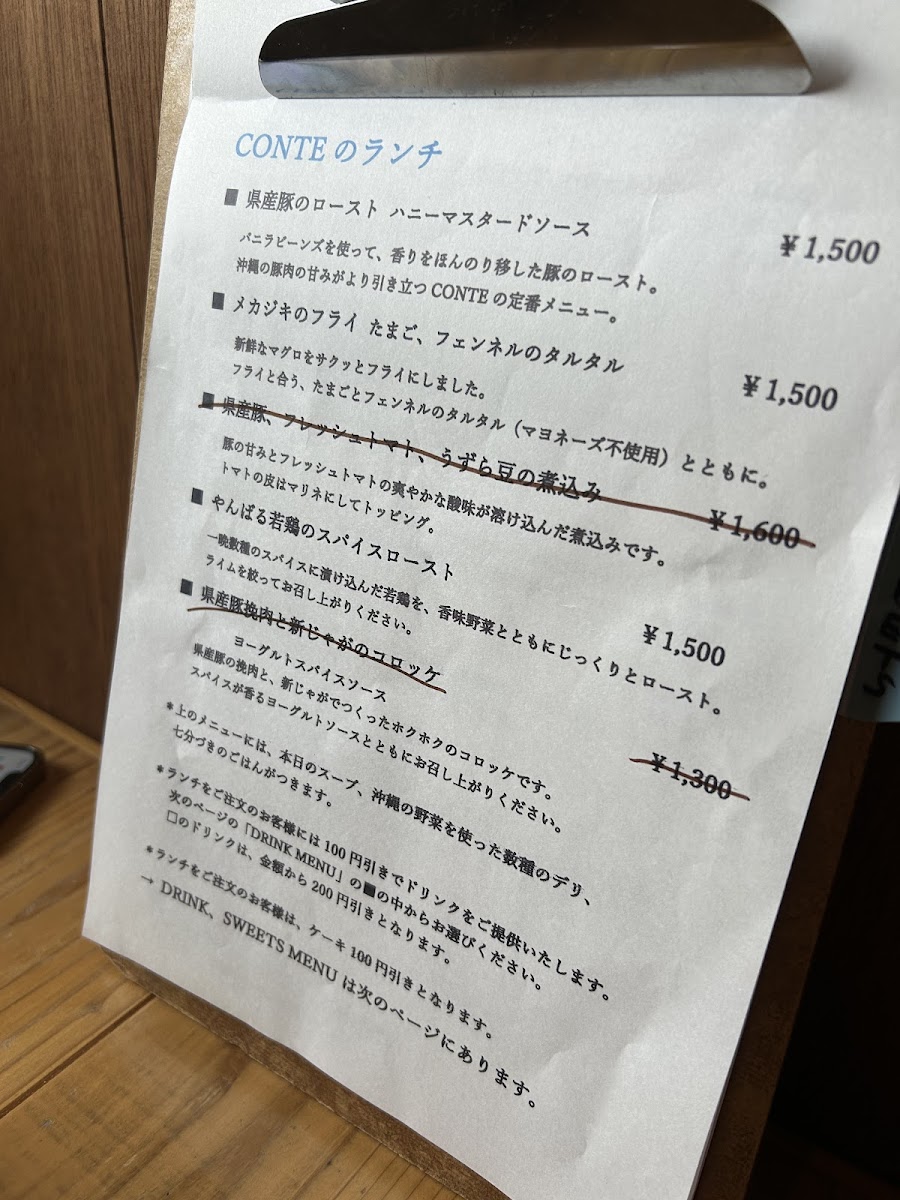 CONTEのランチ
■ 県産豚のロースト ハニーマスタードソース
¥1,500
バニラビーンズを使って、香りをほんのり移した豚のロースト。
沖縄の豚肉の甘みがより引き立つCONTEの定番メニュー。
■ メカジキのフライ たまご、フェンネルのタルタル
¥1,500
新鮮なマグロをサクッとフライにしました。
フライと合う、たまごとフェンネルのタルタル（マヨネーズ不使用）とともに。
■ 県産豚、フレッシュトマト、うずら豆の煮込み
¥1,600
豚の甘みとフレッシュトマトの爽やかな酸味が溶け込んだ煮込みです。
トマトの皮はマリネにしてトッピング。
■ やんばる若鶏のスパイスロースト
¥1,500
一晩数種のスパイスに漬け込んだ若鶏を、香味野菜とともにじっくりとロースト。
ライムを絞ってお召し上がりください。
■ 県産豚挽肉と新じゃがのコロッケ
ヨーグルトスパイスソース
¥1,300
県産豚の挽肉と、新じゃがでつくったホクホクのコロッケです。
スパイスが香るヨーグルトソースとともにお召し上がりください。
*上のメニューには、本日のスープ、沖縄の野菜を使った数種のデリ、
七分づきのごはんがつきます。
*ランチをご注文のお客様には100円引きでドリンクをご提供いたします。
次のページの「DRINK MENU」の■の中からお選びください。
□のドリンクは、金額から200円引きとなります。
*ランチをご注文のお客様は、ケーキ100円引きとなります。
→ DRINK、SWEETS MENUは次のページにあります。